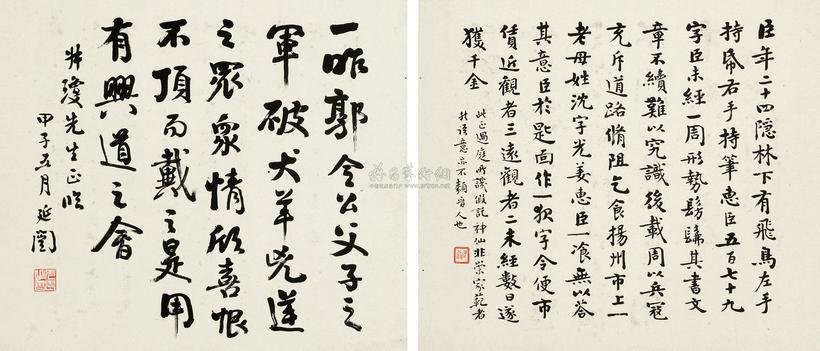 臣年二十四隱林下有飛鳥左手
持帋右手持筆惠臣五百七十九
字臣未經一周形勢髣髴其書文
章不續難以究識後載周以兵寇
充斥道路脩阻乞食揚州市上一
老母姓沈字光姜惠臣一飡無以答
其意臣於匙面作一夜字令便市
賃近觀者三遠觀者二未經數日遂
獲千金
此正過庭所譏假託神仙非崇家範者
語意亦不類晉人也
一昨郭令公父子之
軍破犬羊兇逆
之眾衆情欣喜恨
不頂而戴之是用
有興道之會
瓊先生正
甲子五月延闓
雅昌藝術網